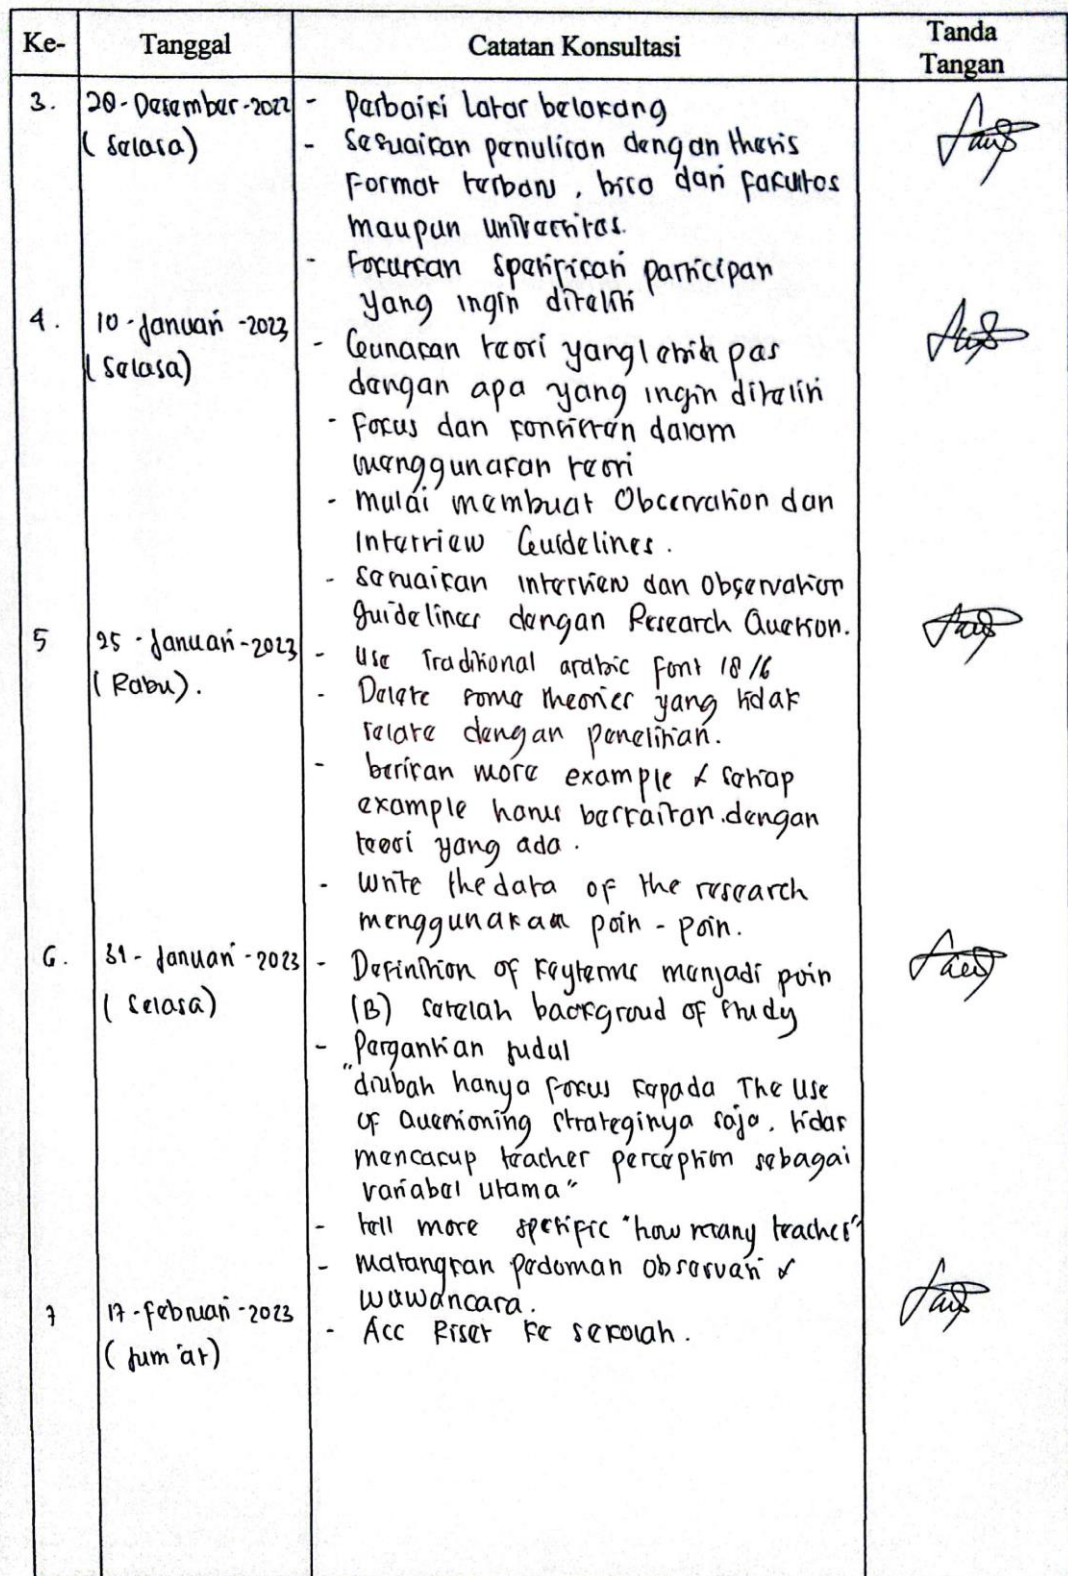 Ke- Tanggal Catatan Konsultasi Tanda Tangan
3. 20-Desember-2022 - Perbaiki latar belakang
(Selasa) - Sesuaikan penulisan dengan thesis
Format terbaru, bisa dari fakultas
maupun universitas.
- Fokuskan spesifikasi participan
yang ingin diteliti
4. 10-Januari-2023
(Selasa) - Gunakan teori yang lebih pas
dengan apa yang ingin diteliti
- Fokus dan konsisten dalam
menggunakan teori
- Mulai membuat Observation dan
Interview Guidelines.
- Sesuaikan interview dan observation
guidelines dengan Research Question.
5 25-Januari-2023 - Use Traditional arabic Font 18/16
(Rabu). - Delete some theories yang tidak
relate dengan penelitian.
- berikan more example & setiap
example harus berkaitan dengan
teori yang ada.
- Write the data of the research
menggunakan poin-poin.
6. 31-Januari-2023 - Definition of Keyterms menjadi poin
(Selasa) (B) setelah backgroud of study
- Pergantian judul
"diubah hanya fokus kepada The Use
of Questioning Strateginya saja, tidak
mencakup teacher perception sebagai
variabel utama"
- tell more spesific "how many teacher"
- matangkan pedoman observasi &
wawancara.
7 17-februari-2023 - Acc Riset ke sekolah.
(Jum'at)